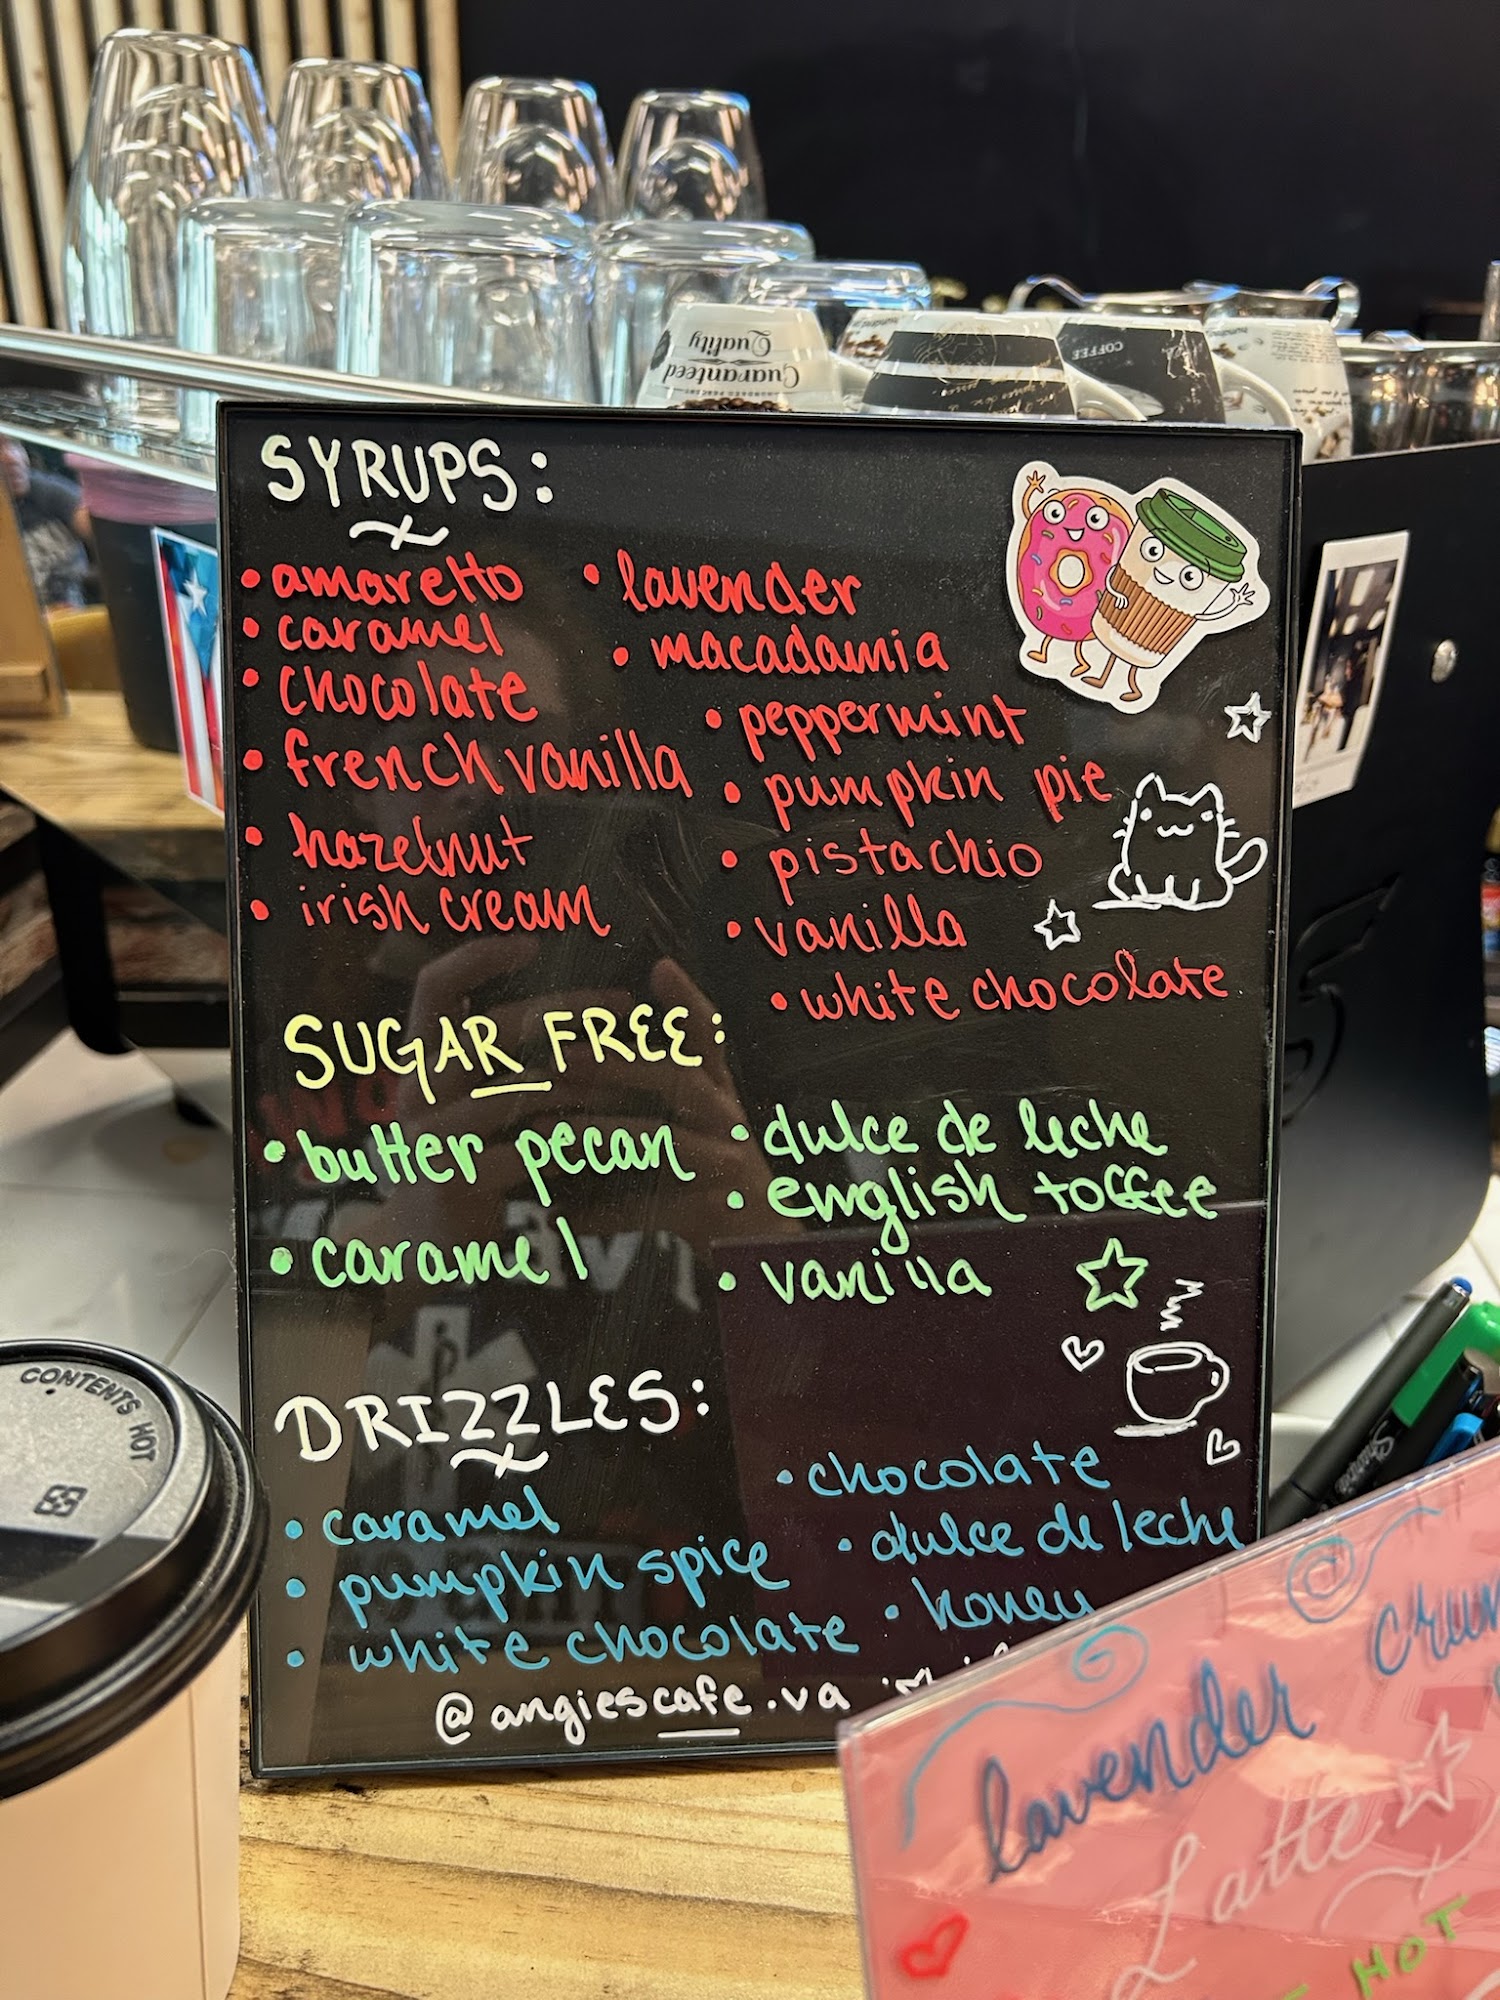 Guaranteed
Quality
COFFEE
SYRUPS:
• amaretto
• caramel
• chocolate
• french vanilla
• hazelnut
• irish cream
• lavender
• macadamia
• peppermint
• pumpkin pie
• pistachio
• vanilla
• white chocolate
SUGAR FREE:
• butter pecan
• caramel
• dulce de leche
• english toffee
• vanilla
DRIZZLES:
• caramel
• pumpkin spice
• white chocolate
• chocolate
• dulce de leche
• honey
@angiescafe.va
CONTENTS HOT
Sharpie
lavender
Latte
HOT